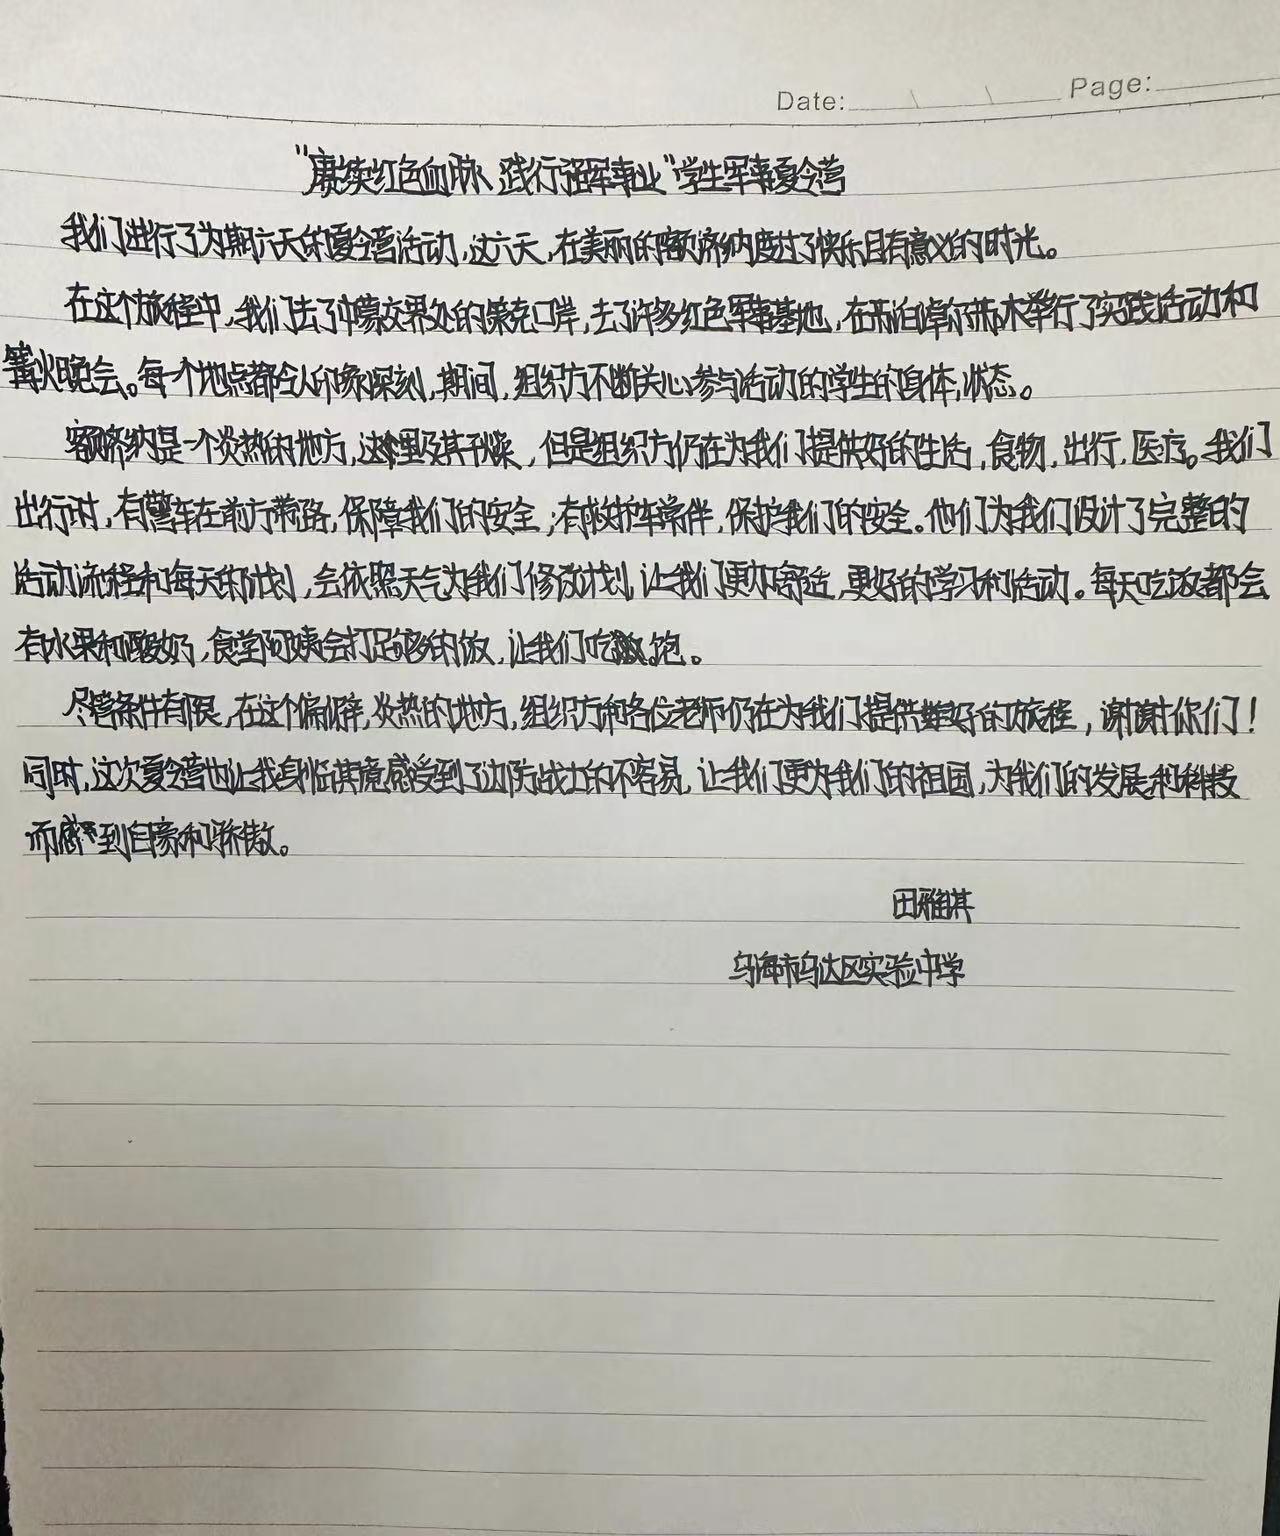 Date: \ \ Page:
"赓续红色血脉、践行强军事业"学生军事夏令营
我们进行了为期六天的夏令营活动,这六天,在美丽的额济纳度过了快乐且有意义的时光。
在这个旅程中,我们去了中蒙交界处的策克口岸,去了许多红色军事基地,在苏泊淖尔苏木举行了实践活动和
篝火晚会。每一个地点都令人印象深刻,期间,组织方不断关心参与活动的学生的身体,状态。
额济纳是一个炎热的地方,这里及其干燥,但是组织方仍在为我们提供好的生活,食物,出行,医疗。我们
出行时,有警车在前方带路,保障我们的安全;有救护车常伴,保护我们的安全。他们为我们设计了完整的
活动流程和每天的计划,会依照天气为我们修改计划,让我们更加舒适,更好的学习和活动。每天吃饭都会
有水果和酸奶,食堂阿姨会打足够多的饭,让我们吃饱。
尽管条件有限,在这个偏僻,炎热的地方,组织方和各位老师仍在为我们提供好的旅程,谢谢你们!
同时,这次夏令营也让我身临其境感受到了边防战士的不容易,让我们更为我们的祖国,为我们的发展和科技
而感到自豪和骄傲。
田雅淇
乌海市乌达区实验中学